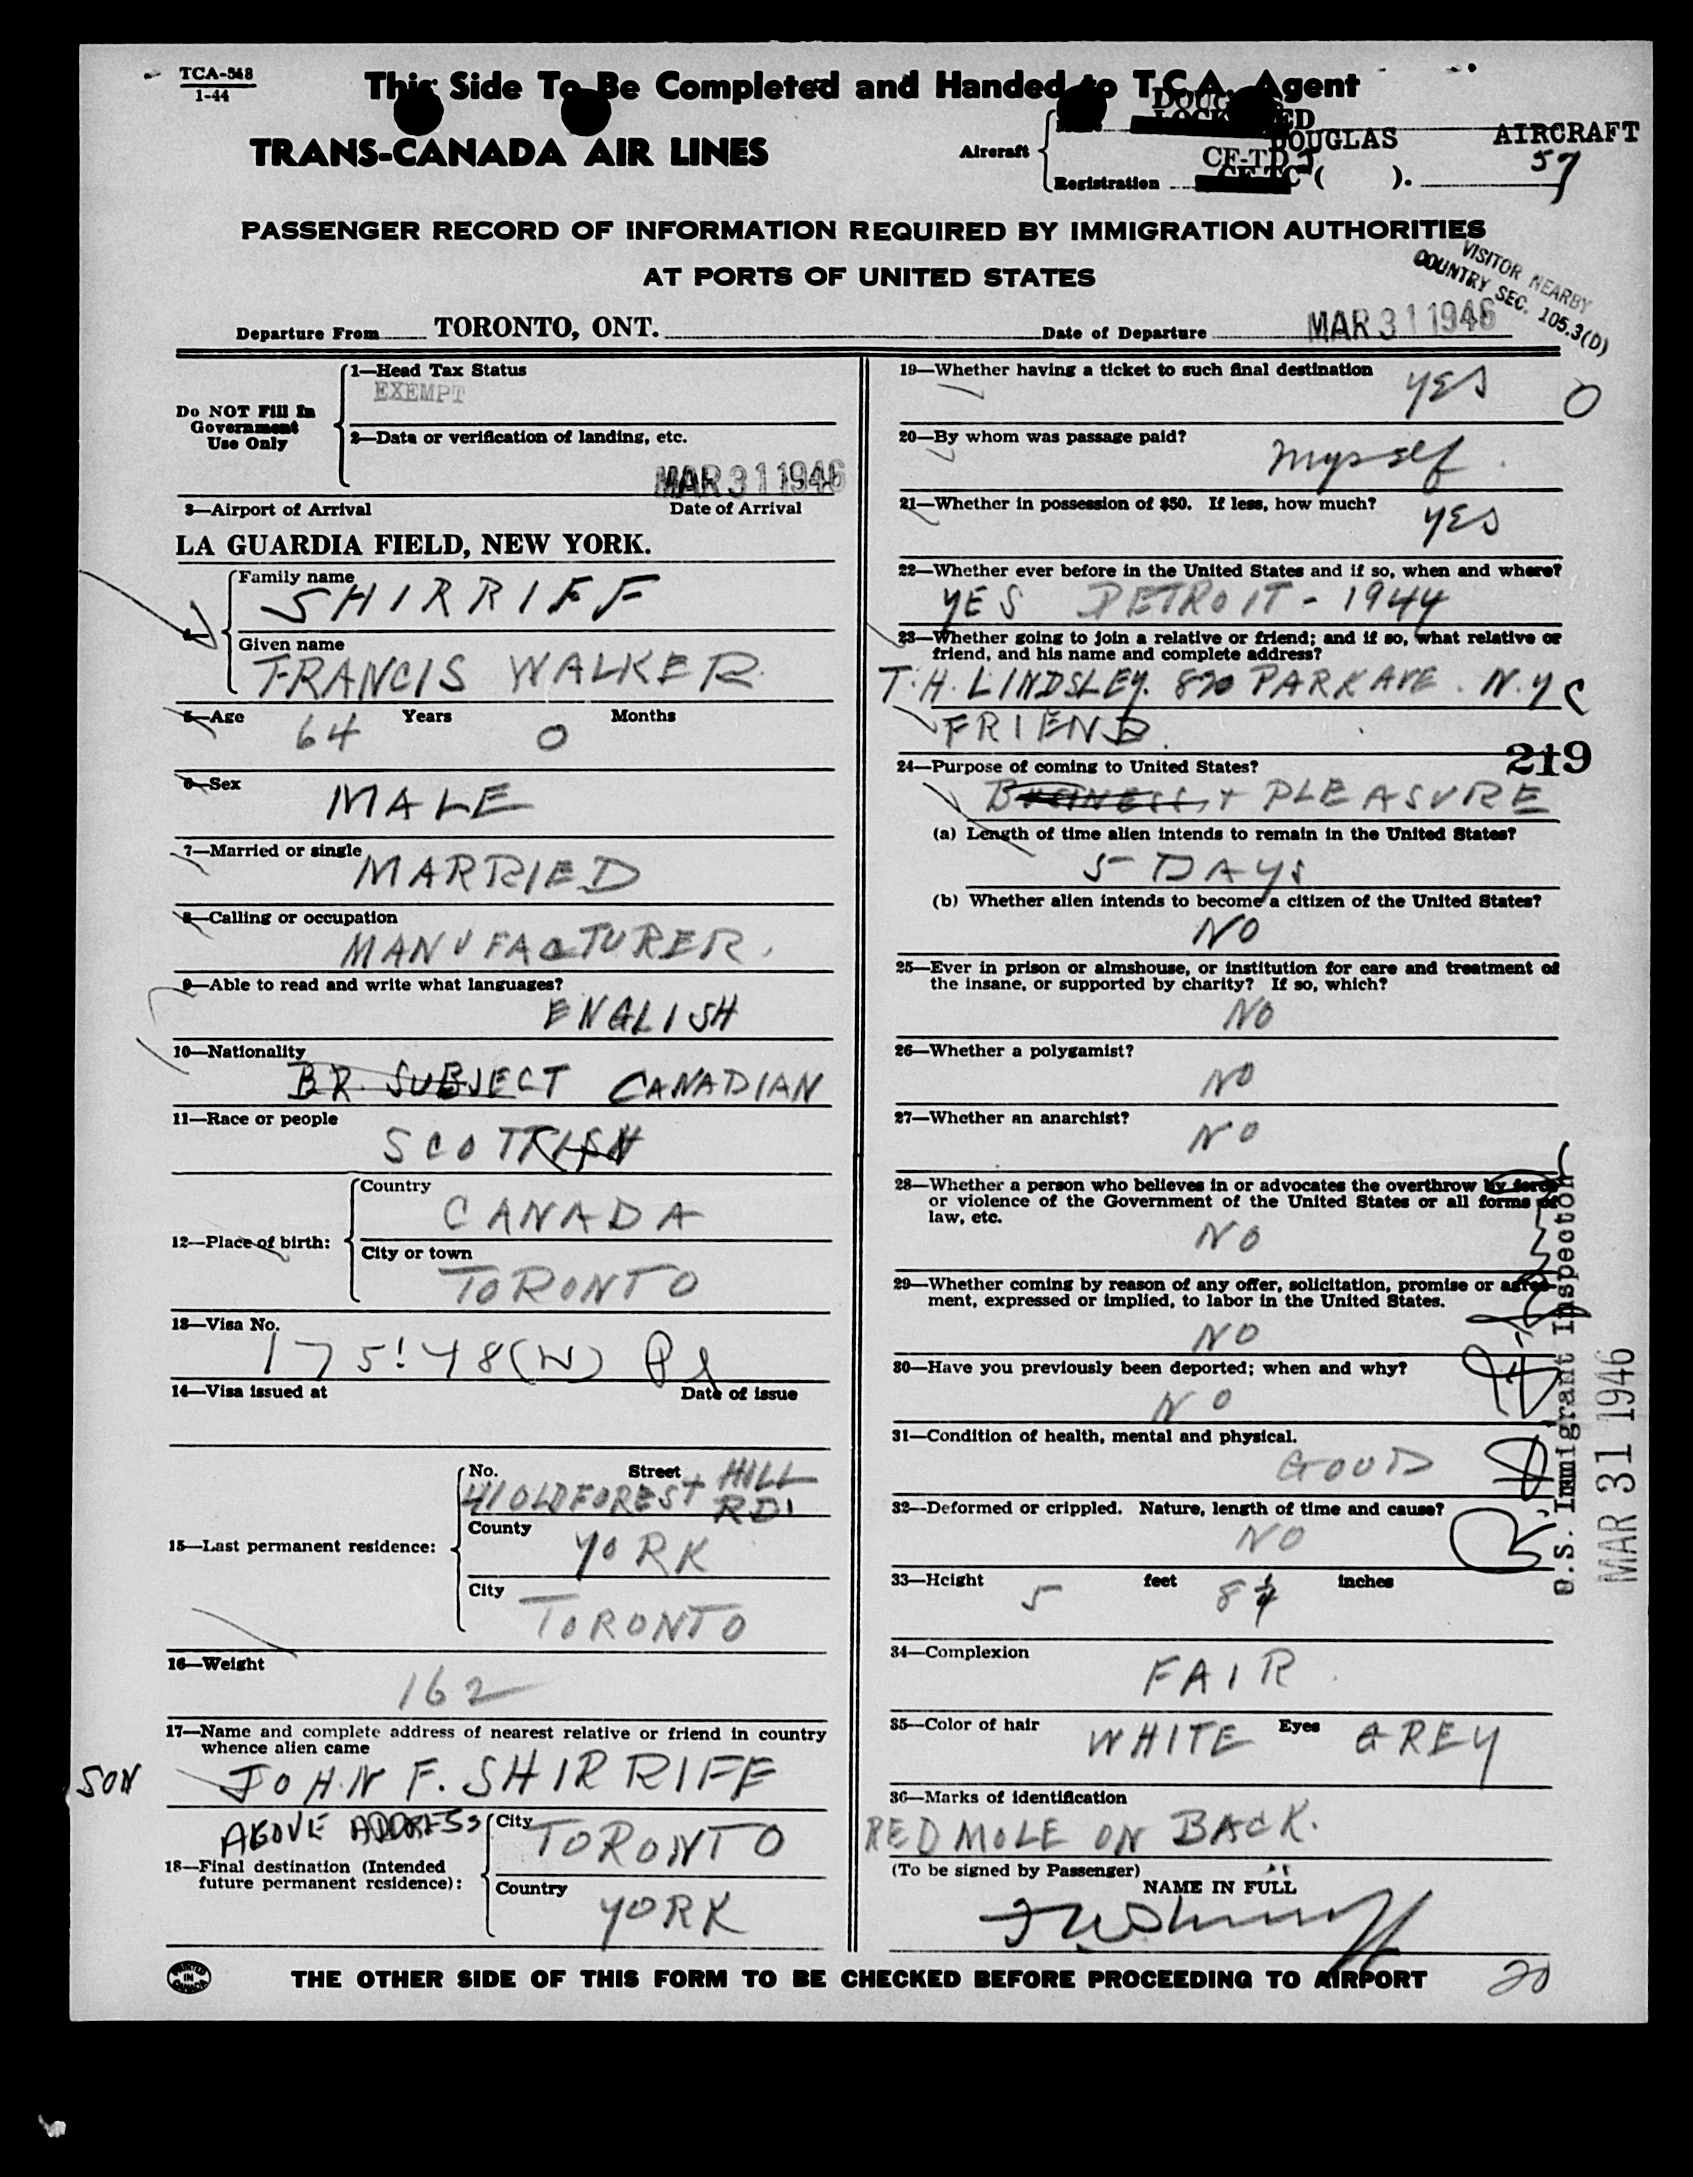 TCA-548
1-44
This Side To Be Completed and Handed to T.C.A. Agent
TRANS-CANADA AIR LINES
Aircraft
DOUGLAS AIRCRAFT
Registration CF-TD ( ). 57
PASSENGER RECORD OF INFORMATION REQUIRED BY IMMIGRATION AUTHORITIES
AT PORTS OF UNITED STATES
VISITOR NEARBY
COUNTRY SEC. 105.3(D)
Departure From TORONTO, ONT. Date of Departure MAR 31 1946
Do NOT Fill In
Government
Use Only
1—Head Tax Status
EXEMPT
2—Data or verification of landing, etc.
MAR 31 1946
3—Airport of Arrival Date of Arrival
LA GUARDIA FIELD, NEW YORK.
Family name
SHIRRIFF
Given name
FRANCIS WALKER
5—Age 64 Years 0 Months
6—Sex
MALE
7—Married or single
MARRIED
8—Calling or occupation
MANUFACTURER.
9—Able to read and write what languages?
ENGLISH
10—Nationality
BR. SUBJECT CANADIAN
11—Race or people
SCOTTISH
12—Place of birth:
Country
CANADA
City or town
TORONTO
13—Visa No.
14—Visa issued at Date of issue
15—Last permanent residence:
No. Street
41 OLD FOREST HILL
RD.
County
YORK
City
TORONTO
16—Weight
162
17—Name and complete address of nearest relative or friend in country
whence alien came
SON JOHN F. SHIRRIFF
ABOVE ADDRESS
18—Final destination (Intended
future permanent residence):
City
TORONTO
Country
YORK
19—Whether having a ticket to such final destination
YES 0
20—By whom was passage paid?
Myself.
21—Whether in possession of $50. If less, how much?
YES
22—Whether ever before in the United States and if so, when and where?
YES DETROIT - 1944
23—Whether going to join a relative or friend; and if so, what relative or
friend, and his name and complete address?
T. H. LINDSLEY. 820 PARK AVE. N.Y C
FRIEND.
219
24—Purpose of coming to United States?
BUSINESS + PLEASURE
(a) Length of time alien intends to remain in the United States?
5 DAYS
(b) Whether alien intends to become a citizen of the United States?
NO
25—Ever in prison or almshouse, or institution for care and treatment of
the insane, or supported by charity? If so, which?
NO
26—Whether a polygamist?
NO
27—Whether an anarchist?
NO
28—Whether a person who believes in or advocates the overthrow by force
or violence of the Government of the United States or all forms of
law, etc.
NO
29—Whether coming by reason of any offer, solicitation, promise or agree-
ment, expressed or implied, to labor in the United States.
NO
30—Have you previously been deported; when and why?
NO
31—Condition of health, mental and physical.
GOOD
32—Deformed or crippled. Nature, length of time and cause?
NO
33—Height 5 feet 8 inches
34—Complexion
FAIR.
35—Color of hair WHITE Eyes GREY
36—Marks of identification
RED MOLE ON BACK.
(To be signed by Passenger)
NAME IN FULL
F W Shirriff
U.S. Immigrant Inspector
MAR 31 1946
PRINTED
IN
CANADA
THE OTHER SIDE OF THIS FORM TO BE CHECKED BEFORE PROCEEDING TO AIRPORT
20